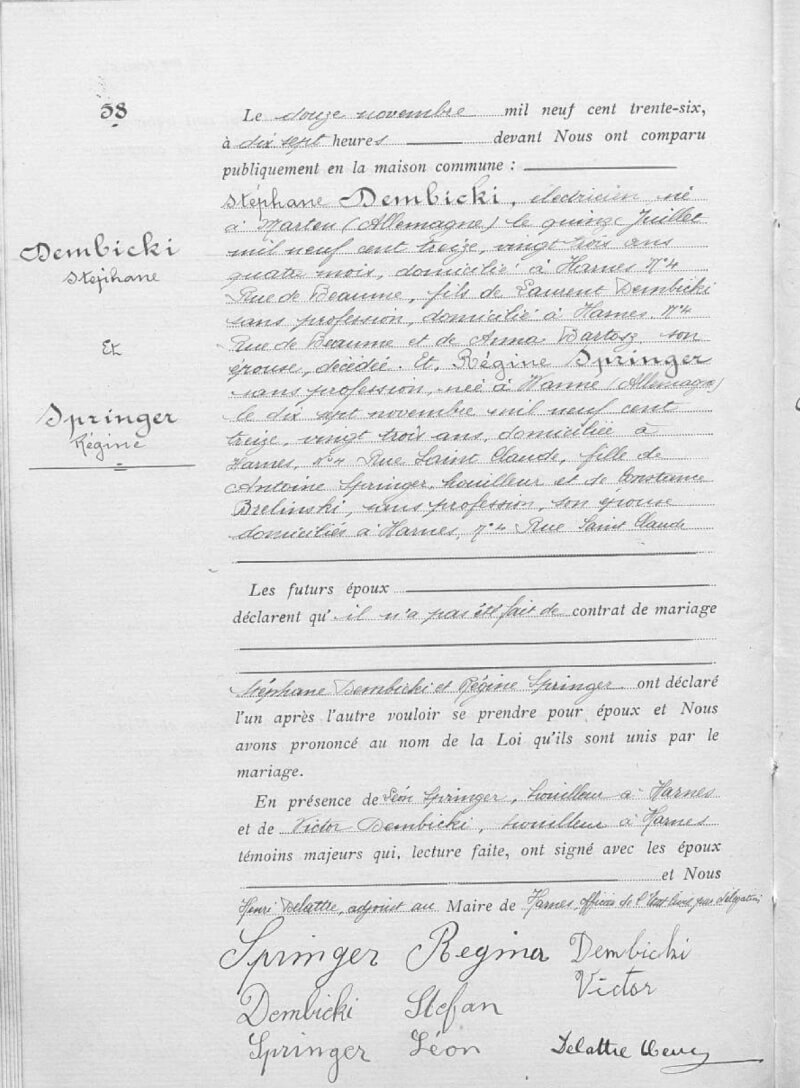 58
Dembicki
Stéphane
Et
Springer
Régine
Le douze novembre mil neuf cent trente-six,
à dix sept heures devant Nous ont comparu
publiquement en la maison commune :
Stéphane Dembicki, électricien né
à Marten (Allemagne) le quinze Juillet
mil neuf cent treize, vingt trois ans
quatre mois, domicilié à Harnes N°4
Rue de Beaume, fils de Laurent Dembicki
sans profession, domicilié à Harnes N°4
Rue de Beaume et de Anna Bartosz son
épouse, décédée. Et, Régine Springer
sans profession, née à Wanne (Allemagne)
le dix sept novembre mil neuf cent
treize, vingt trois ans, domiciliée à
Harnes, N°4 Rue Saint Claude, fille de
Antoine Springer, houilleur et de Constance
Brelinski, sans profession, son épouse
domiciliés à Harnes, N°4 Rue Saint Claude
Les futurs époux
déclarent qu'il n'a pas été fait de contrat de mariage
Stéphane Dembicki et Régine Springer ont déclaré
l'un après l'autre vouloir se prendre pour époux et Nous
avons prononcé au nom de la Loi qu'ils sont unis par le
mariage.
En présence de Léon Springer, houilleur à Harnes
et de Victor Dembicki, houilleur à Harnes
témoins majeurs qui, lecture faite, ont signé avec les époux
et Nous
Henri Delattre, adjoint au Maire de Harnes, officier de l'Etat Civil par délégation
Springer Regina Dembicki
Victor
Dembicki Stefan
Springer Léon Delattre Henri